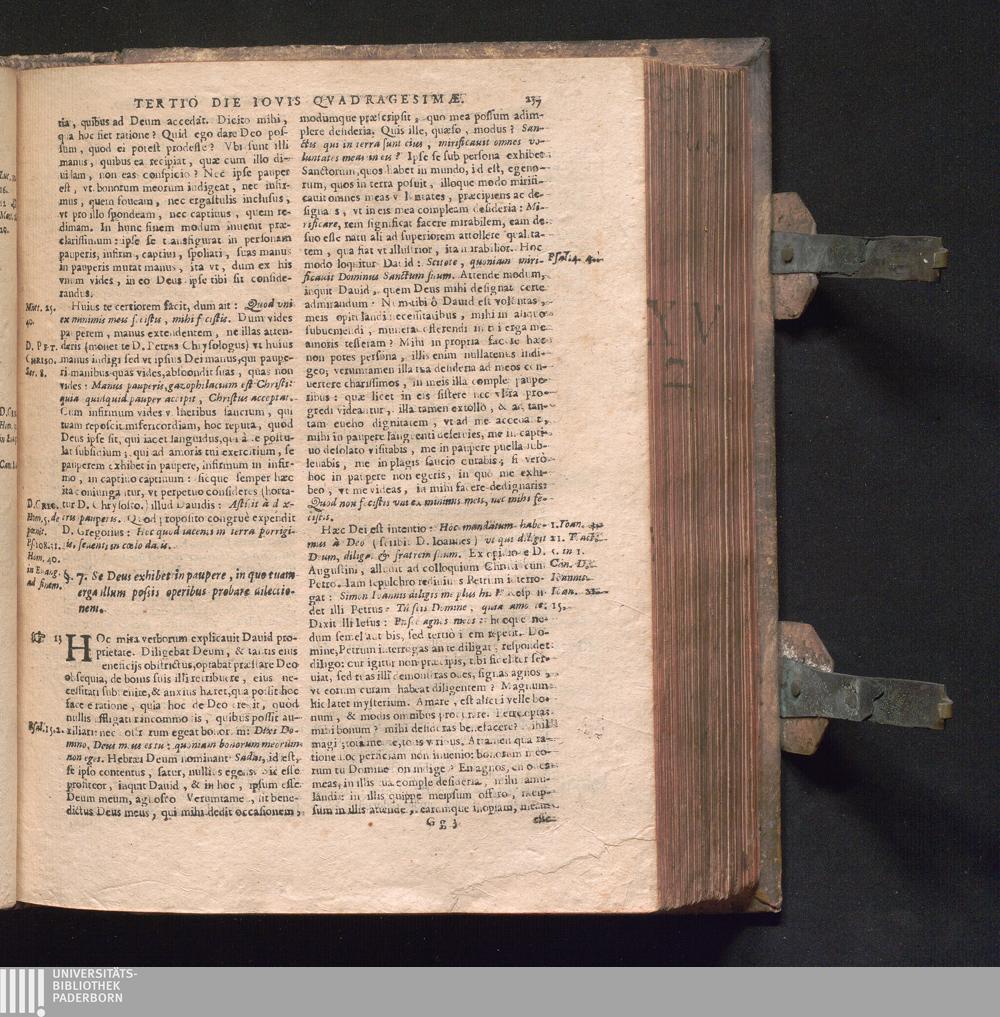 TERTIO DIE IOVIS QVADRAGESIMÆ. 237
tia, quibus ad Deum accedat. Dicito mihi,
qua hoc fiet ratione? Quid ego dare Deo pos-
sum, quod ei potest prodesse? Vbi sunt illi
manus, quibus ea recipiat, quæ cum illo di-
uisam, non eas conspicio? Nec ipse pauper
est, vt bonorum meorum indigeat, nec infir-
mus, quem foueam, nec ergastulis inclusus,
vt pro illo spondeam, nec captiuus, quem re-
dimam. In hunc finem modum inuenit præ-
clarissimum: ipse se transfigurat in personam
pauperis, infirmi, captiui, spoliati, suas manus
in pauperis mutat manus, ita vt, dum ex his
vnum vides, in eo Deus ipse tibi sit conside-
randus.
Matt. 25.
40.
Huius te certiorem facit, dum ait: Quod vni
ex minimis meis fecistis, mihi fecistis. Dum vides
pauperem, manus extendentem, ne illas atten-
D. PET.
CHRISO.
Ser. 8.
deris (monet te D. Petrus Chrysologus) vt huius
manus indigi sed vt ipsius Dei manus, qui paupe-
ri manibus quas vides, abscondit suas, quas non
vides: Manus pauperis, gazophilacium est Christi:
quia quidquid pauper accipit, Christus acceptat.
Cum infirmum vides vlceribus saucium, qui
tuam reposcit misericordiam, hoc reputa, quod
Deus ipse sit, qui iacet languidus, qui à te postu-
lat subsidium; qui ad amoris tui exercitium, se
pauperem exhibet in paupere, infirmum in infir-
mo, in captiuo captiuum: sicque semper hæc
ita coniungantur, vt perpetuo consideres (horta-
D. CRIS.
Hom. 5. de
pœnit.
Ps. 108. 31.
Hom. 40.
in Euang.
ad finem.
tur D. Chrysosto.) illud Dauidis: Astitit à dex-
tris pauperis. Quod proposito congruè expendit
D. Gregorius: Hoc quod iacenti in terra porrigi-
tis, sedenti in cœlo datis.
§. 7. Se Deus exhibet in paupere, in quo tuam
erga illum possis operibus probare dilectio-
nem.
13 HOc mira verborum explicauit Dauid pro-
prietate. Diligebat Deum, & tantis eius
beneficijs obstrictus, optabat præstare Deo
obsequia, de bonis suis illi retribuere, eius ne-
cessitati subuenire, & anxius hæret, qua possit hoc
facere ratione, quia hoc de Deo credit, quod
nullis affligatur incommodis, quibus possit au-
Psal. 15. 2.
xiliari: nec vllorum egeat bonorum: Dixi Do-
mino, Deus meus es tu: quoniam bonorum meorum
non eges. Hebræi Deum nominant Sadai, id est,
se ipso contentus, sater, nullius egens. Sic esse
profiteor, inquit Dauid, & in hoc, ipsum esse
Deum meum, agnosco. Verumtamen, sit bene-
dictus Deus meus, qui mihi dedit occasionem,
modumque præscripsit, quo mea possum adim-
plere desideria. Quis ille, quæso, modus? San-
ctis qui in terra sunt eius, mirificauit omnes vo-
luntates meas in eis? Ipse se sub persona exhibet
Sanctorum, quos habet in mundo, id est, egeno-
rum, quos in terra posuit, illoque modo mirifi-
cauit omnes meas voluntates, præcipiens ac de-
signans, vt in eis mea compleam desideria: Mi-
rificare, rem significat facere mirabilem, eam de
suo esse naturali ad superiorem attollere qualita-
tem, qua fiat vt illustrior, ita mirabilior. Hoc
modo loquitur Dauid: Scitote, quoniam miri-
Psal. 4. 4.
ficauit Dominus Sanctum suum. Attende modum,
inquit Dauid, quem Deus mihi designat certe
admirandum. Num tibi ô Dauid est voluntas,
meis opitulandi necessitatibus, mihi in aliquo
subueniendi, munera offerendi in tui erga me
amoris tesseram? Mihi in propria facere hæc
non potes persona, illis enim nullatenus indi-
geo; verumtamen illa tua desideria ad meos con-
uertere charissimos, in meis illa comple paupe-
ribus: quæ licet in eis sistere nec vltra pro-
gredi videantur, illa tamen extollo, & ad tan-
tam eueho dignitatem, vt ad me accedant,
mihi in paupere languenti deseruies, me in capti-
uo desolato visitabis, me in paupere puella sub-
leuabis, me in plagis saucio curabis; si verò
hoc in paupere non egeris, in quo me exhi-
beo, vt me videas, id mihi facere dedignaris:
Quod non fecistis vni ex minimis meis, nec mihi fe-
cistis.
Hæc Dei est intentio: Hoc mandatum habe-
mus à Deo (scribit D. Ioannes) vt qui diligit
Deum, diligat & fratrem suum. Ex opinione D.
Augustini, alludit ad colloquium Christi cum
Petro. Iam sepulchro rediuiuus Petrum interro-
gat: Simon Ioannis diligis me plus his? Respon-
det illi Petrus: Tu scis Domine, quia amo te.
Dixit illi Iesus: Pasce agnos meos: hocque no-
dum semel aut bis, sed tertiò idem repetit. Do-
mine, Petrum interrogas an te diligat, respondet:
diligo: cur igitur non præcipis, tibi fideliter ser-
uiat, sed tuas illi demonstras oues, signas agnos,
vt eorum curam habeat diligentem? Magnum
hic latet mysterium. Amare, est alteri velle bo-
num, & modis omnibus procurare. Petre optas
mihi bonum? mihi desideras benefacere?
tione hoc perficiam non inuenio: bonorum meo-
rum tu Domine non indiges? En agnos, en oues
meas, in illis tua comple desideria, mihi amu-
landiæ in illis quippe meipsum offero, meip-
sum in illis attende, earumque inopiam, meam
Gg 3 esse
XV
UNIVERSITÄTS-
BIBLIOTHEK
PADERBORN